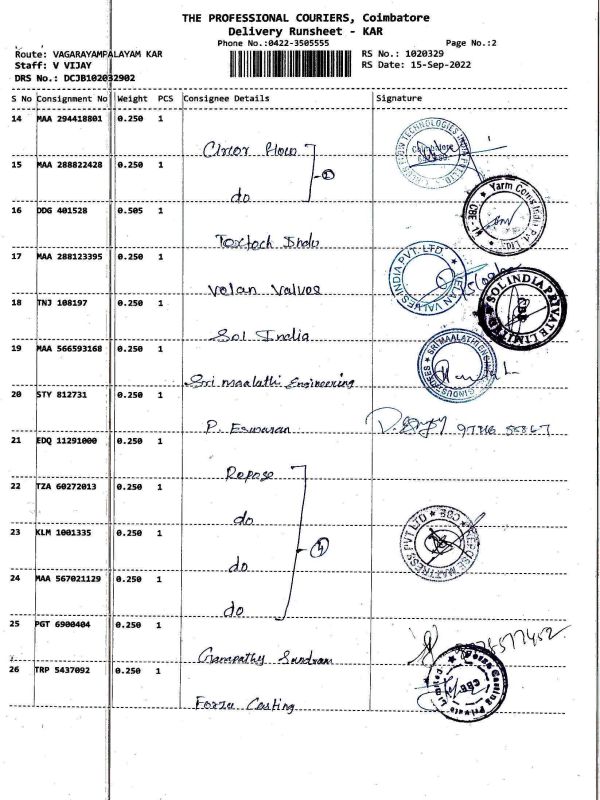 THE PROFESSIONAL COURIERS, Coimbatore
Delivery Runsheet - KAR
Phone No.:0422-3505555 Page No.:2
Route: VAGARAYAMPALAYAM KAR RS No.: 1020329
Staff: V VIJAY RS Date: 15-Sep-2022
DRS No.: DCJB102032902
S No Consignment No Weight PCS Consignee Details Signature
14 MAA 294418801 0.250 1
15 MAA 288822428 0.250 1
do
16 DDG 401528 0.505 1
17 MAA 288123395 0.250 1
Velan Valves
VELAN VALVES INDIA PVT. LTD
18 TNJ 108197 0.250 1
Sol India
SOL INDIA PRIVATE LIMITED
19 MAA 566593168 0.250 1
Sri maalathi Engineering
SRI MAALATHI ENGINEERING INDUSTRIES
20 STY 812731 0.250 1
P. Eswaran
21 EDQ 11291000 0.250 1
Repose
22 TZA 60272013 0.250 1
do
23 KLM 1001335 0.250 1
do
REPOSE MATTRESS PVT LTD
24 MAA 567021129 0.250 1
do
25 PGT 6900404 0.250 1
26 TRP 5437092 0.250 1
Forza Casting